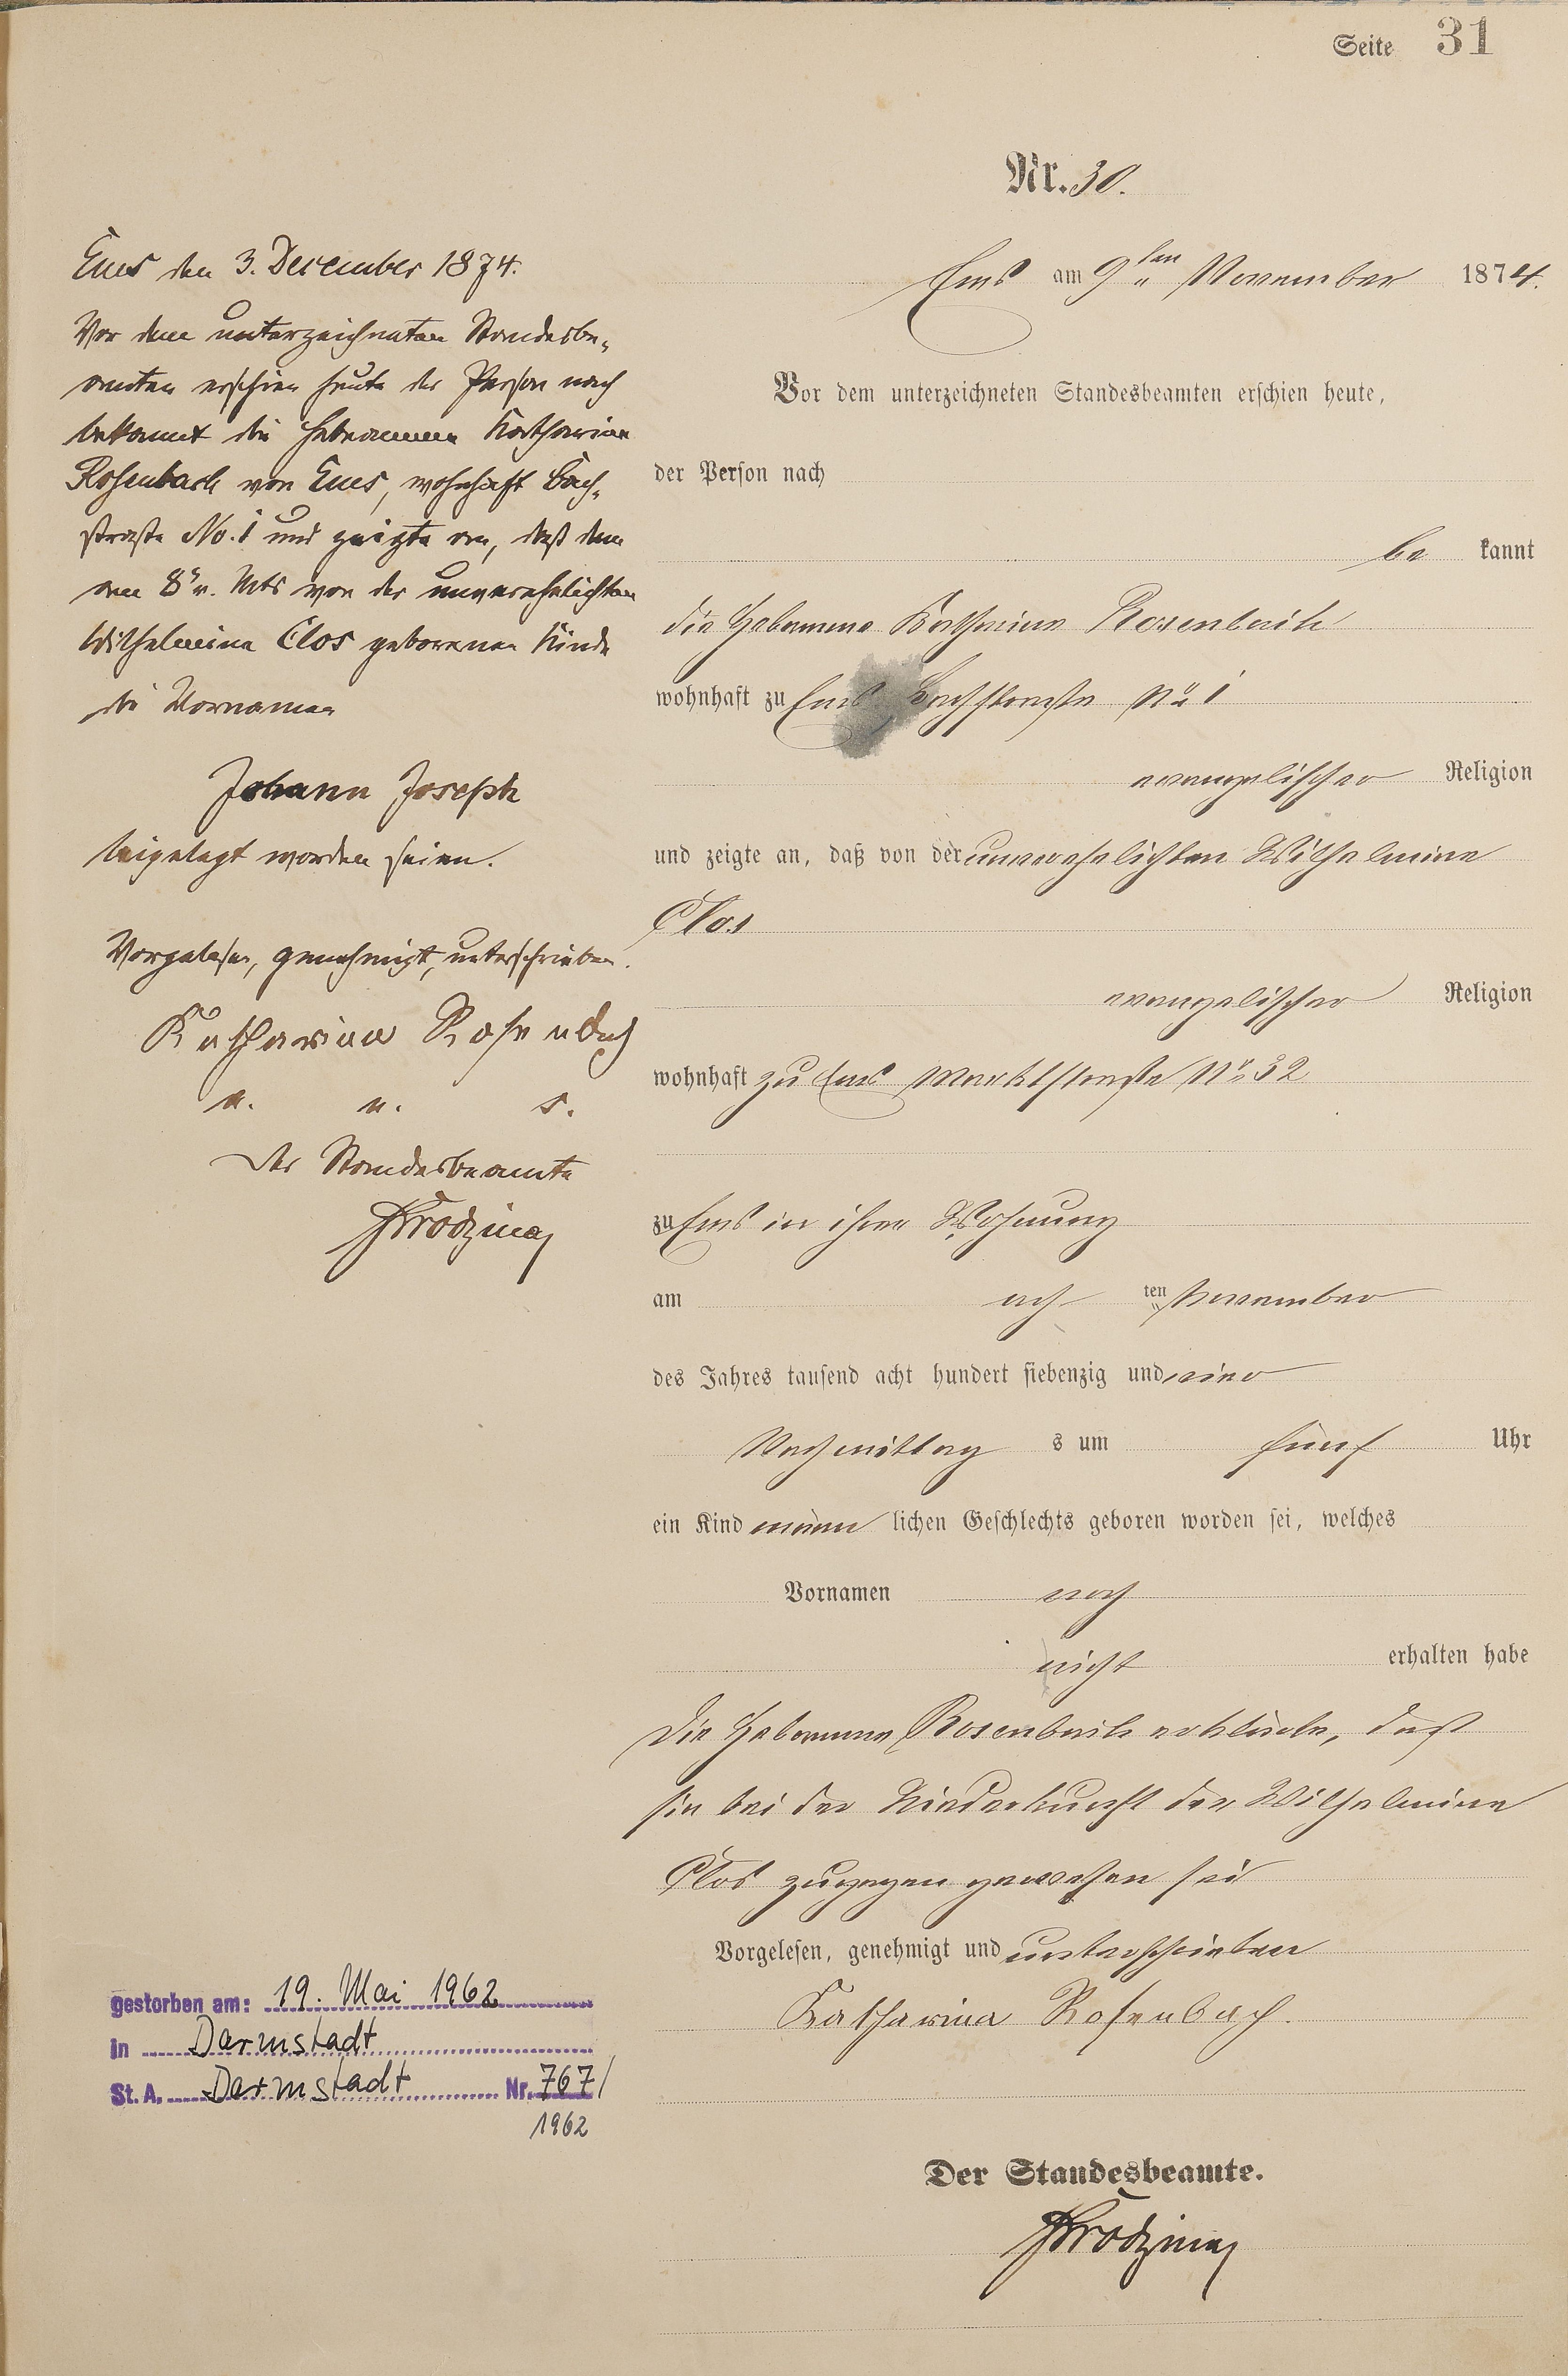 Seite 31
Nr. 30.
Ems am 9ten November 1874.
Vor dem unterzeichneten Standesbeamten erschien heute,
der Person nach
be kannt
die Hebamme Katharina Rosenbach
wohnhaft zu Ems, Bachstraße No 1
evangelischer Religion
und zeigte an, daß von der unverehelichten Wilhelmine
Clos
evangelischer Religion
wohnhaft zu Ems Marktstraße No 32
zu Ems in ihrer Wohnung
am ach ten November
des Jahres tausend acht hundert siebenzig und vier
Nachmittag s um fünf Uhr
ein Kind männ lichen Geschlechts geboren worden sei, welches
Vornamen noch
nicht erhalten habe
Die Hebamme Rosenbach erklärte, daß
sie bei der Niederkunft der Wilhelmine
Clos zugegen gewesen sei
Vorgelesen, genehmigt und unterschrieben
Katharina Rosenbach.
Der Standesbeamte.
Ems den 3. December 1874.
Vor dem unterzeichneten Standesbe-
amten erschien heute der Person nach
bekannt die Hebamme Katharina
Rosenbach von Ems, wohnhaft Bach-
straße No. 1 und zeigte an, daß dem
am 8t v. Mts von der unverehelichten
Wilhelmina Clos geborenen Kinde
die Vornamen
Johann Joseph
beigelegt worden seien.
Vorgelesen, genehmigt, unterschrieben.
Katharina Rosenbach
a. u. s.
Der Standesbeamte
gestorben am: 19. Mai 1962
in Darmstadt
St. A. Darmstadt Nr. 767/
1962